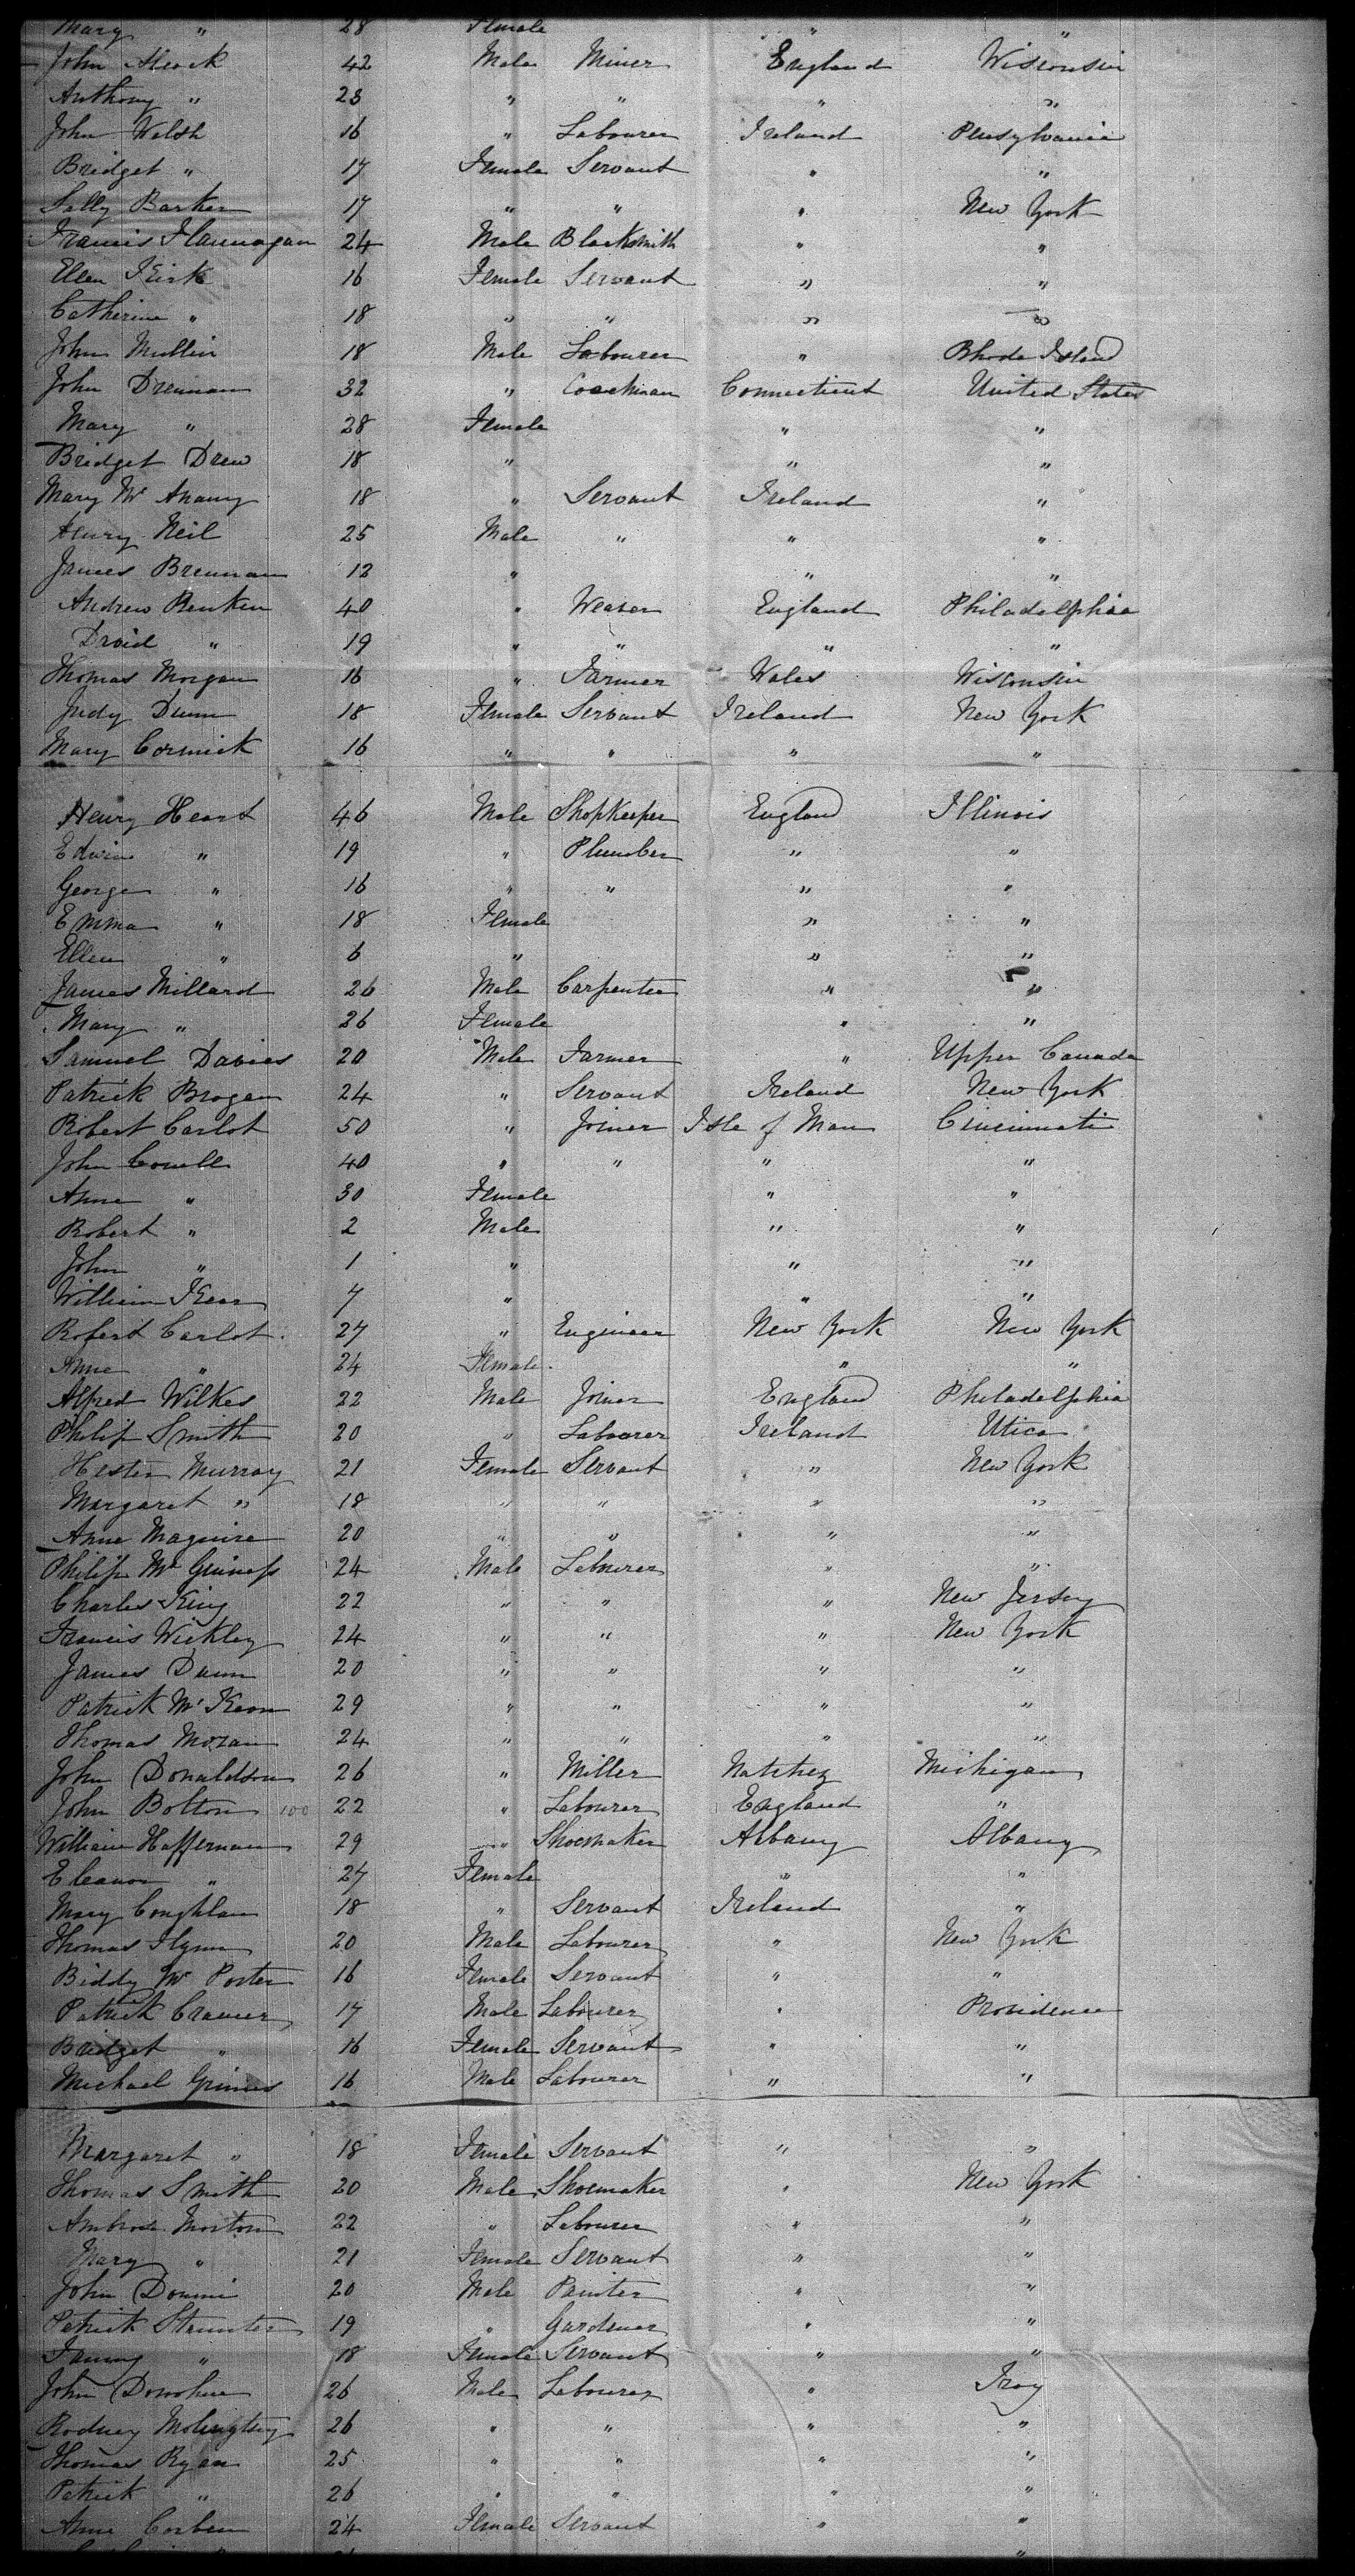 Mary " 28 Female " "
John Alcock 42 Male Miner England Wisconsin
Anthony " 23 " " " "
John Walsh 16 " Labourer Ireland Pensylvania
Bridget " 17 Female Servant " "
Sally Barker 17 " " " New York
Francis Flannagan 24 Male Blacksmith " "
Ellen Kirk 16 Female Servant " "
Catherine " 18 " " " "
John Mullin 18 Male Labourer " Rhode Island
John Drennan 32 " Coachman Connecticut United States
Mary " 28 Female " "
Bridget Drew 18 " " "
Mary Mc 18 " Servant Ireland "
Henry Neil 25 Male " " "
James Brennan 12 " " "
Andrew Renken 40 " Weaver England Philadelphia
David " 19 " " " "
Thomas Morgan 16 " Farmer Wales Wisconsin
Judy Dunn 18 Female Servant Ireland New York
Mary Cormick 16 " " " "
Henry Heart 46 Male Shopkeeper England Illinois
Edwin " 19 " Plumber " "
George " 16 " " " "
Emma " 18 Female " "
Ellen " 6 " " "
James Millard 26 Male Carpenter " "
Mary " 26 Female " "
Samuel Davies 20 Male Farmer " Upper Canada
Patrick Brogan 24 " Servant Ireland New York
Robert Carlot 50 " Joiner Isle of Man Cincinnati
John Cowell 40 " " " "
Anne " 30 Female " "
Robert " 2 Male " "
John " 1 " " "
William Kear 7 " " "
Robert Carlot 27 " Engineer New York New York
Anne " 24 Female " "
Alfred Wilkes 22 Male Joiner England Philadelphia
Philip Smith 20 " Labourer Ireland Utica
Hester Murray 21 Female Servant " New York
Margaret " 18 " " " "
Anne Maguire 20 " " " "
Philip Mc Guiness 24 Male Labourer " "
Charles King 22 " " " New Jersey
Francis Wickley 24 " " " New York
James Dunn 20 " " " "
Patrick Mc Keon 29 " " " "
Thomas Moran 24 " " " "
John Donaldson 26 " Miller Natchez Michigan
John Bolton 100 22 " Labourer England "
William Haffernan 29 " Shoemaker Albany Albany
Eleanor " 27 Female " "
Mary Coughlan 18 " Servant Ireland "
Thomas Flynn 20 Male Labourer " New York
Biddy Mc Porter 16 Female Servant " "
Patrick Cramer 17 Male Labourer " Providence
Bridget " 16 Female Servant " "
Michael Grimes 16 Male Labourer " "
Margaret " 18 Female Servant " "
Thomas Smith 20 Male Shoemaker " New York
Ambrose Morton 22 " Labourer " "
Mary " 21 Female Servant " "
John 20 Male Painter " "
Patrick Staunter 19 " Gardener " "
Fanny " 18 Female Servant " "
John Donohue 26 Male Labourer " Troy
Rodney 26 " " " "
Thomas Ryan 25 " " " "
Patrick " 26 " " " "
Anne Corben 24 Female Servant " "